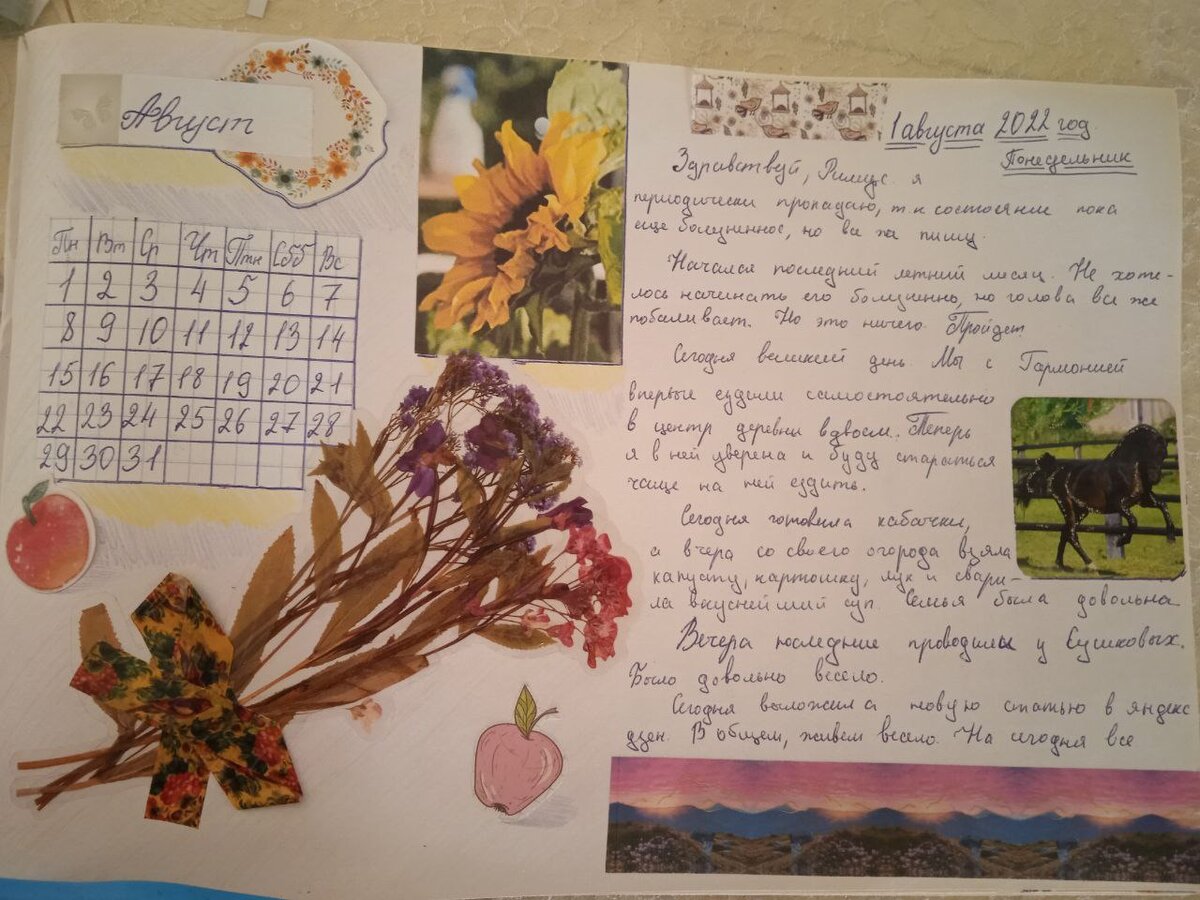 Август
Пн Вт Ср Чт Птн Сбб Вс
1 2 3 4 5 6 7
8 9 10 11 12 13 14
15 16 17 18 19 20 21
22 23 24 25 26 27 28
29 30 31
1 августа 2022 год.
Понедельник
Здравствуй, я
периодически пропадаю, т.к состояние пока
еще болезненное, но все же пишу.
Начался последний летний месяц. Не хоте-
лось начинать его болезненно, но голова все же
побаливает. Но это ничего. Пройдет.
Сегодня великий день. Мы с Гармонией
впервые ездили самостоятельно
в центр деревни вдвоем. Теперь
я в ней уверена и буду стараться
чаще на ней ездить.
Сегодня готовила кабачки,
а вчера со своего огорода взяла
капусту, картошку, лук и свари-
ла вкуснейший суп. Семья была довольна
Вечера последние проводили у Сушковых.
Было довольно весело.
Сегодня выложила новую статью в яндекс
дзен. В общем, живем весело. На сегодня все